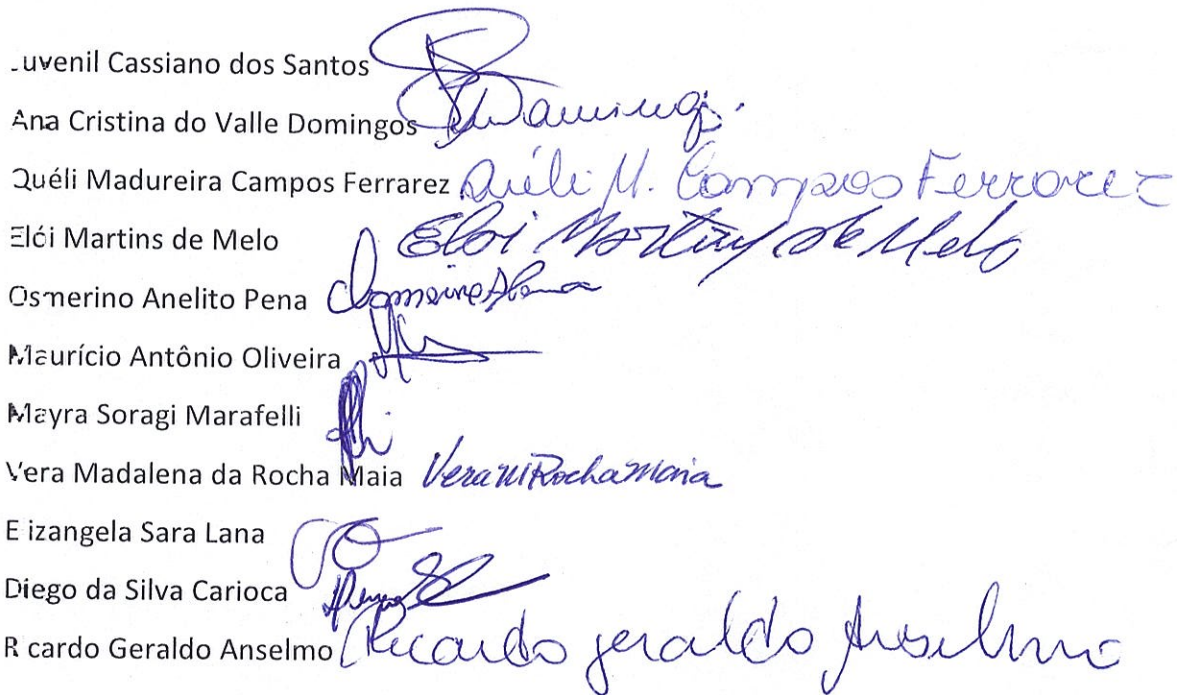 .uvenil Cassiano dos Santos
Ana Cristina do Valle Domingos Domingos.
Quéli Madureira Campos Ferrarez Quéli M. Campos Ferrarez
Elói Martins de Melo Eloi Martins de Melo
Osmerino Anelito Pena
Maurício Antônio Oliveira
Mayra Soragi Marafelli
Vera Madalena da Rocha Maia Vera M Rocha Maia
E izangela Sara Lana
Diego da Silva Carioca
R cardo Geraldo Anselmo Ricardo geraldo Anselmo